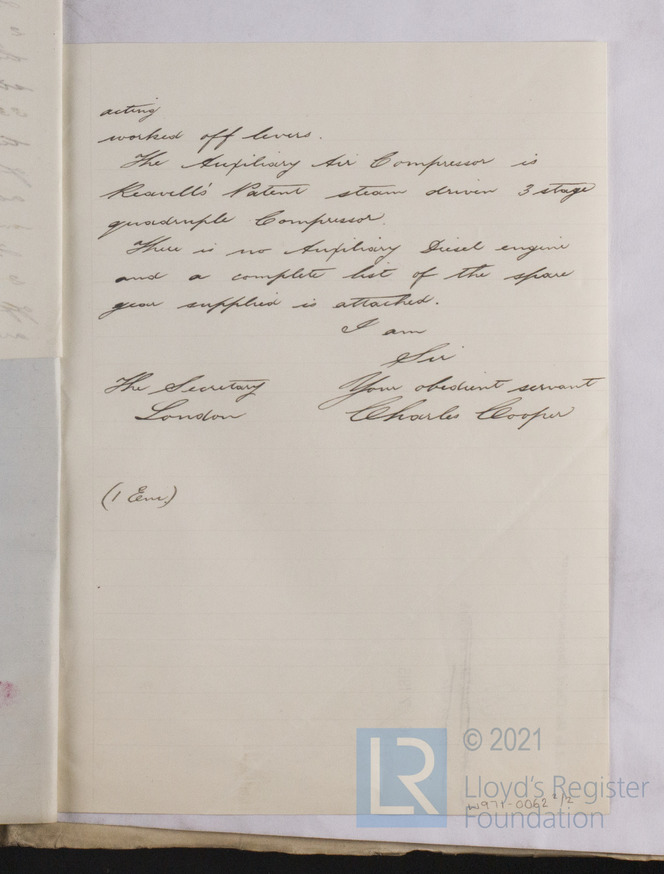 acting
worked off levers.
The Auxiliary Air Compressor is
Reavell's Patent steam driven 3 stage
quadruple Compressor.
There is no Auxiliary Diesel engine
and a complete list of the spare
gear supplied is attached.
I am
Sir
The Secretary Your obedient servant
London Charles Cooper
(1 Enc.)
LR
© 2021
Lloyd's Register
Foundation
W971-0062 2/2